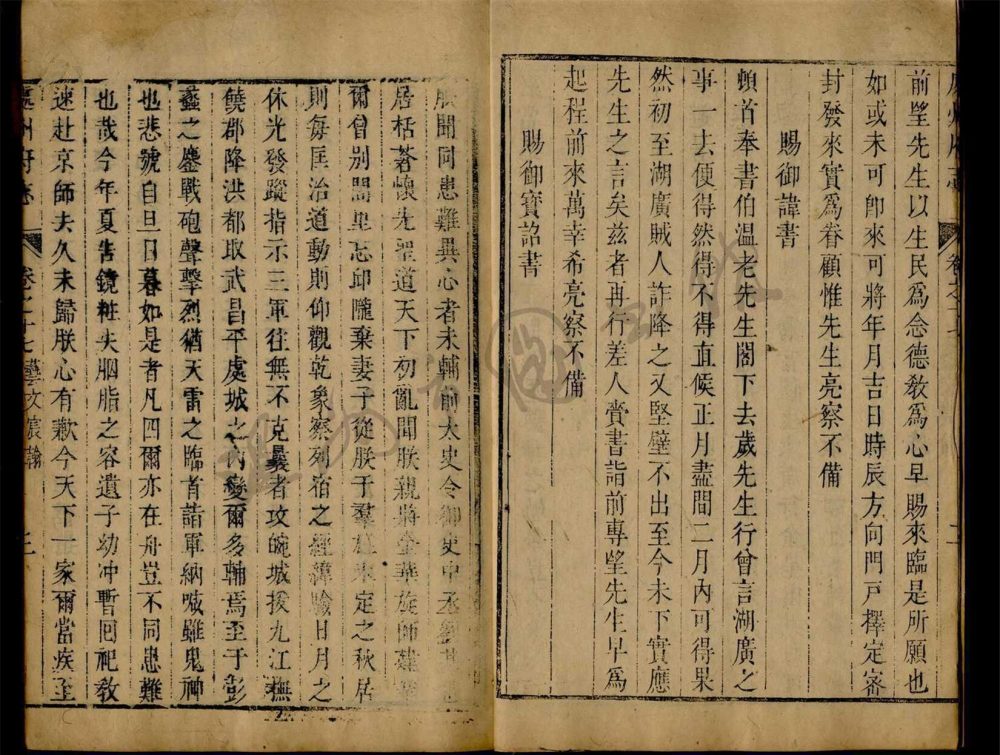 前望先生以生民爲念德敎爲心早賜來臨是所願也
如或未可卽來可將年月吉日時辰方向門戶擇定審
封發來實爲眷顧惟先生亮察不備
賜御諱書
頓首奉書伯溫老先生閣下去歲先生行曾言湖廣之
事一去便得然得不得直候正月盡間二月內可得果
然初至湖廣賊人詐降之又堅壁不出至今未下實應
先生之言矣茲者再行差人賫書詣前專望先生早爲
起程前來萬幸希亮察不備
賜御寶詔書
朕聞同患難異心者未輔前太史令御史中丞劉
居栝蒼懷先聖道天下初亂聞朕親將金華旋師建
爾曾別閭里忘邱隴棄妻子從朕于羣雄未定之秋居
則每匡治道動則仰觀乾象察列宿之經緯驗日月之
休光發蹤指示三軍往無不克曩者攻皖城援九江撫
饒郡降洪都取武昌平處城之內變爾多輔焉至于彭
蠡之鏖戰砲聲擊烈猶天雷之臨首諸軍納喊雖鬼神
也悲號自旦日暮如是者凡四爾亦在舟豈不同患難
也哉今年夏告鏡粧失胭脂之容遺子幼冲暫囘祀敎
速赴京師去久未歸朕心有歉今天下一家爾當疾至
處州府志 卷之十七 藝文宸翰 三